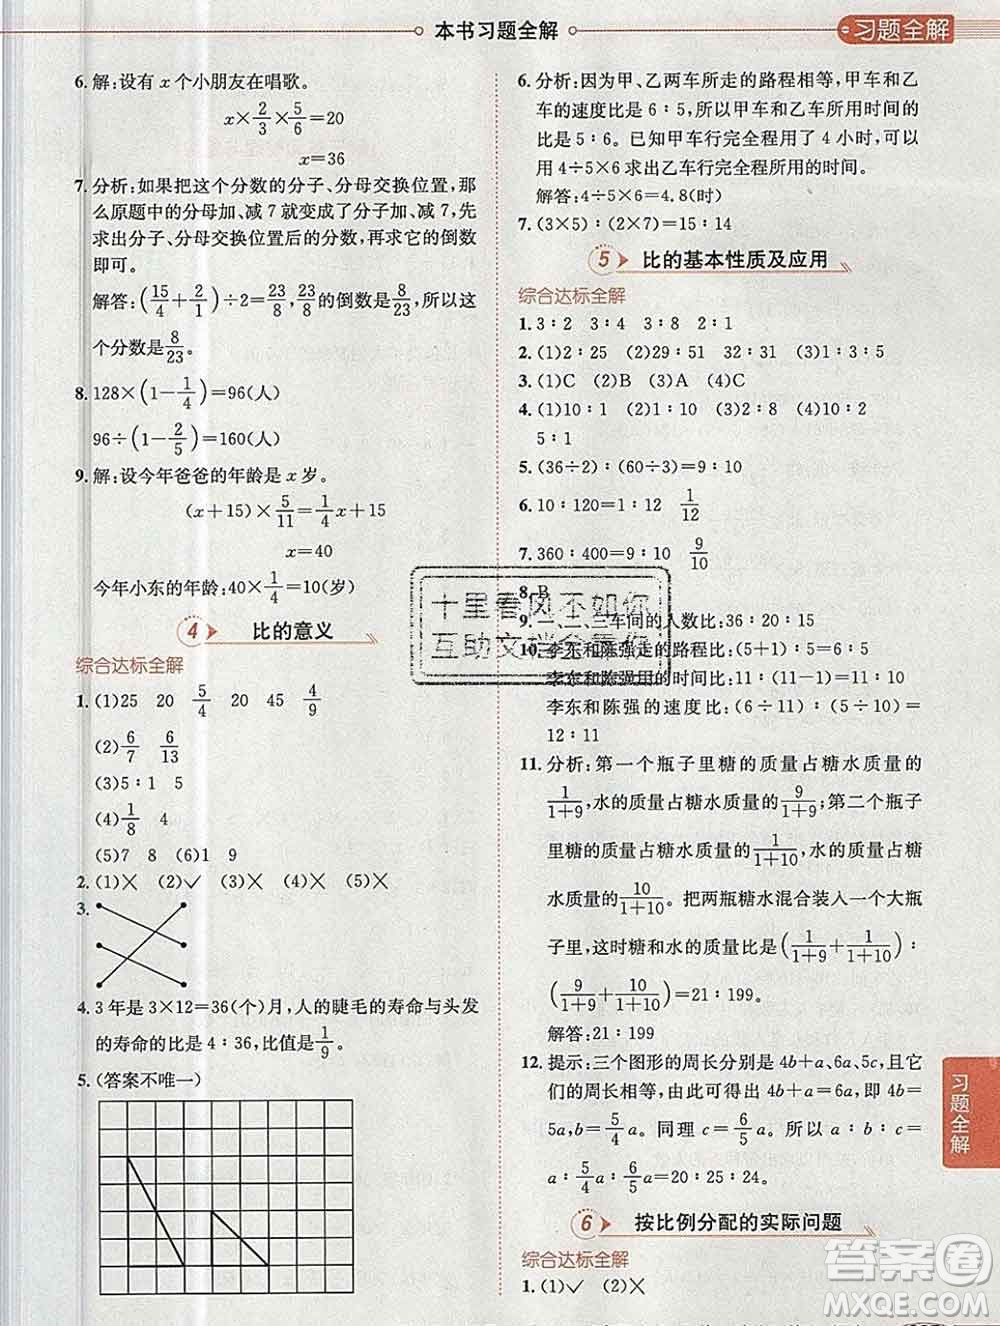 本书习题全解
习题全解
6. 解:设有 x 个小朋友在唱歌。
x×2/3×5/6=20
x=36
7. 分析:如果把这个分数的分子、分母交换位置,那
么原题中的分母加、减 7 就变成了分子加、减 7,先
求出分子、分母交换位置后的分数,再求它的倒数
即可。
解答:(15/4+2/1)÷2=23/8,23/8的倒数是8/23,所以这
个分数是8/23。
8. 128×(1-1/4)=96(人)
96÷(1-2/5)=160(人)
9. 解:设今年爸爸的年龄是 x 岁。
(x+15)×5/11=1/4x+15
x=40
今年小东的年龄:40×1/4=10(岁)
4 比的意义
综合达标全解
1. (1)25 20 5/4 20 45 4/9
(2)6/7 6/13
(3)5∶1 5
(4)1/8 4
(5)7 8 (6)1 9
2. (1)✕ (2)✓ (3)✕ (4)✕ (5)✕
3.
4. 3 年是 3×12=36(个)月,人的睫毛的寿命与头发
的寿命的比是 4∶36,比值是1/9。
5. (答案不唯一)
6. 分析:因为甲、乙两车所走的路程相等,甲车和乙
车的速度比是 6∶5,所以甲车和乙车所用时间的
比是 5∶6。已知甲车行完全程用了 4 小时,可以
用 4÷5×6 求出乙车行完全程所用的时间。
解答:4÷5×6=4.8(时)
7. (3×5)∶(2×7)=15∶14
5 比的基本性质及应用
综合达标全解
1. 3∶2 8∶5 2∶1
2. (1)2∶25 (2)29∶51 32∶51 (3)1∶3∶5
3. (1)C (2)B (3)A (4)C
4. (1)10∶1 (2)2∶1 (3)4∶1 (4)10∶2
5∶1
5. (36÷2)∶(60÷3)=9∶10
6. 10∶120=1∶12 1/12
7. 360∶400=9∶10 9/10
8. B
9. 一、二、三车间的人数比:36∶20∶15
10. 李东和陈强走的路程比:(5+1)∶5=6∶5
李东和陈强用的时间比:11∶(11-1)=11∶10
李东和陈强的速度比:(6÷11)∶(5÷10)=
12∶11
11. 分析:第一个瓶子里糖的质量占糖水质量的
1/1+9,水的质量占糖水质量的9/1+9;第二个瓶子
里糖的质量占糖水质量的1/1+10,水的质量占糖
水质量的10/1+10。把两瓶糖水混合装入一个大瓶
子里,这时糖和水的质量比是(1/1+9+1/1+10)∶
(9/1+9+10/1+10)=21∶199。
解答:21∶199
12. 提示:三个图形的周长分别是 4b+a、6a、5c,且它
们的周长相等,由此可知 4b+a=6a,即 4b=
5a,b=5/4a。同理 c=6/5a。所以 a∶b∶c=
a∶5/4a∶6/5a=20∶25∶24。
6 按比例分配的实际问题
综合达标全解
1. (1)✓ (2)✕
习题全解
十里春风不如你
答案圈
MXQE.COM